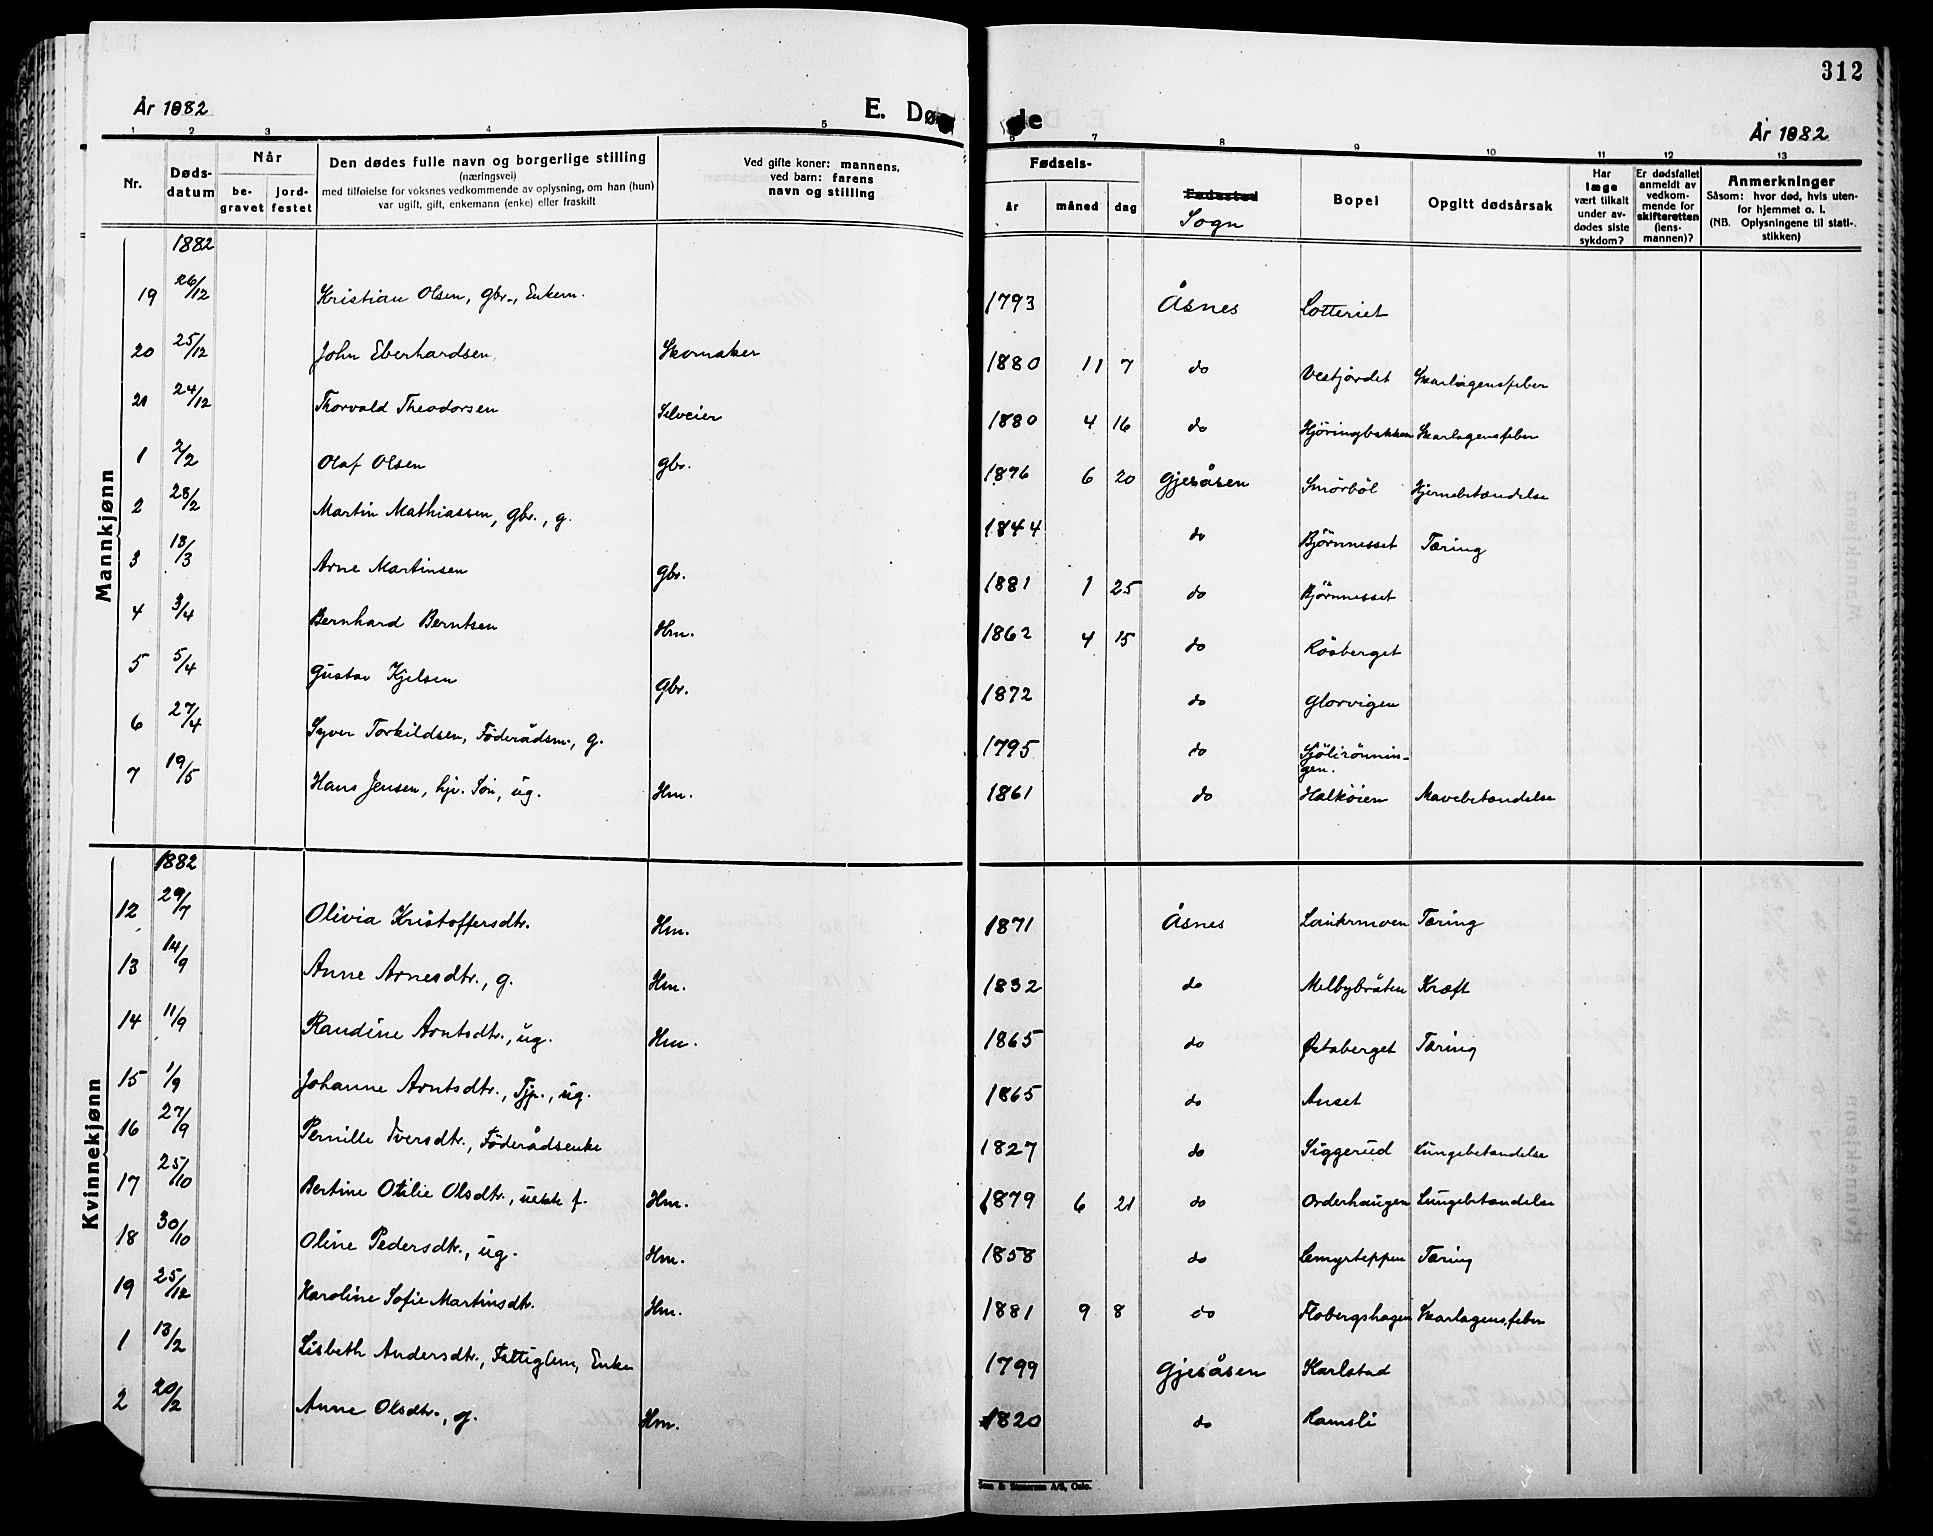 312
År 1882
E. Dø de
År 1882
1 2 3 4 5 6 7 8 9 10 11 12 13
Nr.
Døds-
datum
Når
be-
gravet
jord-
festet
Den dødes fulle navn og borgerlige stilling
(næringsvei)
med tilføielse for voksnes vedkommende av oplysning, om han (hun)
var ugift, gift, enkemann (enke) eller fraskilt
Ved gifte koner: mannens,
ved barn: farens
navn og stilling
Fødsels-
år måned dag
Fødested
Sogn
Bopel
Opgitt dødsårsak
Har
læge
vært tilkalt
under av-
dødes siste
sykdom?
Er dødsfallet
anmeldt av
vedkom-
mende for
skifteretten
(lens-
mannen)?
Anmerkninger
Såsom: hvor død, hvis uten-
for hjemmet o. l.
(NB. Oplysningene til stati-
stikken)
Mannkjønn
1882
19 26/12 Kristian Olsen, Gbr., Enkem. 1793 Åsnes Lotteriet
20 25/12 John Eberhardsen Skomaker 1880 11 7 do Vestjordet Skarlagensfeber
21 24/12 Thorvald Theodorsen Selveier 1880 4 16 do Hjöringbakken Skarlagensfeber
1 2/2 Olaf Olsen Gbr. 1876 6 20 Gjesåsen Smörböl Hjernebetændelse
2 28/2 Martin Mathiassen, Gbr., g. 1844 do Björnnesset Tæring
3 13/3 Arne Martinsen Gbr. 1881 1 25 do Björnnesset
4 3/4 Bernhard Berntsen Hm. 1862 4 15 do Råsberget
5 5/4 Gustav Kjelsen Gbr. 1872 do Glorvigen
6 27/4 Syver Torkildsen, Föderådsm., g. 1795 do Sjölirönnin-
gen.
7 19/5 Hans Jensen, hjv. Sön, ug. Hm. 1861 do Halköien Mavebetændelse
Kvinnekjønn
1882
12 29/7 Olivia Kristoffersdtr. Hm. 1871 Åsnes Lautermoen Tæring
13 14/9 Anne Arnesdtr., g. Hm. 1832 do Melbybråten Kræft
14 11/9 Randine Arntsdtr., ug. Hm. 1865 do Östaberget Tæring
15 1/9 Johanne Arntsdtr., Tjp., ug. 1865 do Anset
16 27/9 Pernille Iversdtr., Föderådsenke 1827 do Siggerud Lungebetændelse
17 25/10 Bertine Otilie Olsdtr., uekte f. Hm. 1879 6 21 do Orderhaugen Lungebetændelse
18 30/10 Oline Pedersdtr., ug. Hm. 1858 do Lemyrteppen Tæring
19 25/12 Karoline Sofie Martinsdtr. Hm. 1881 9 8 do Flobergshagen Skarlagensfeber
1 13/2 Lisbeth Andersdtr., Fattiglem, Enke 1799 Gjesåsen Karlstad
2 20/2 Anne Olsdtr., g. Hm. 1820 do Hamsli
Sem & Stenersen A/S, Oslo.